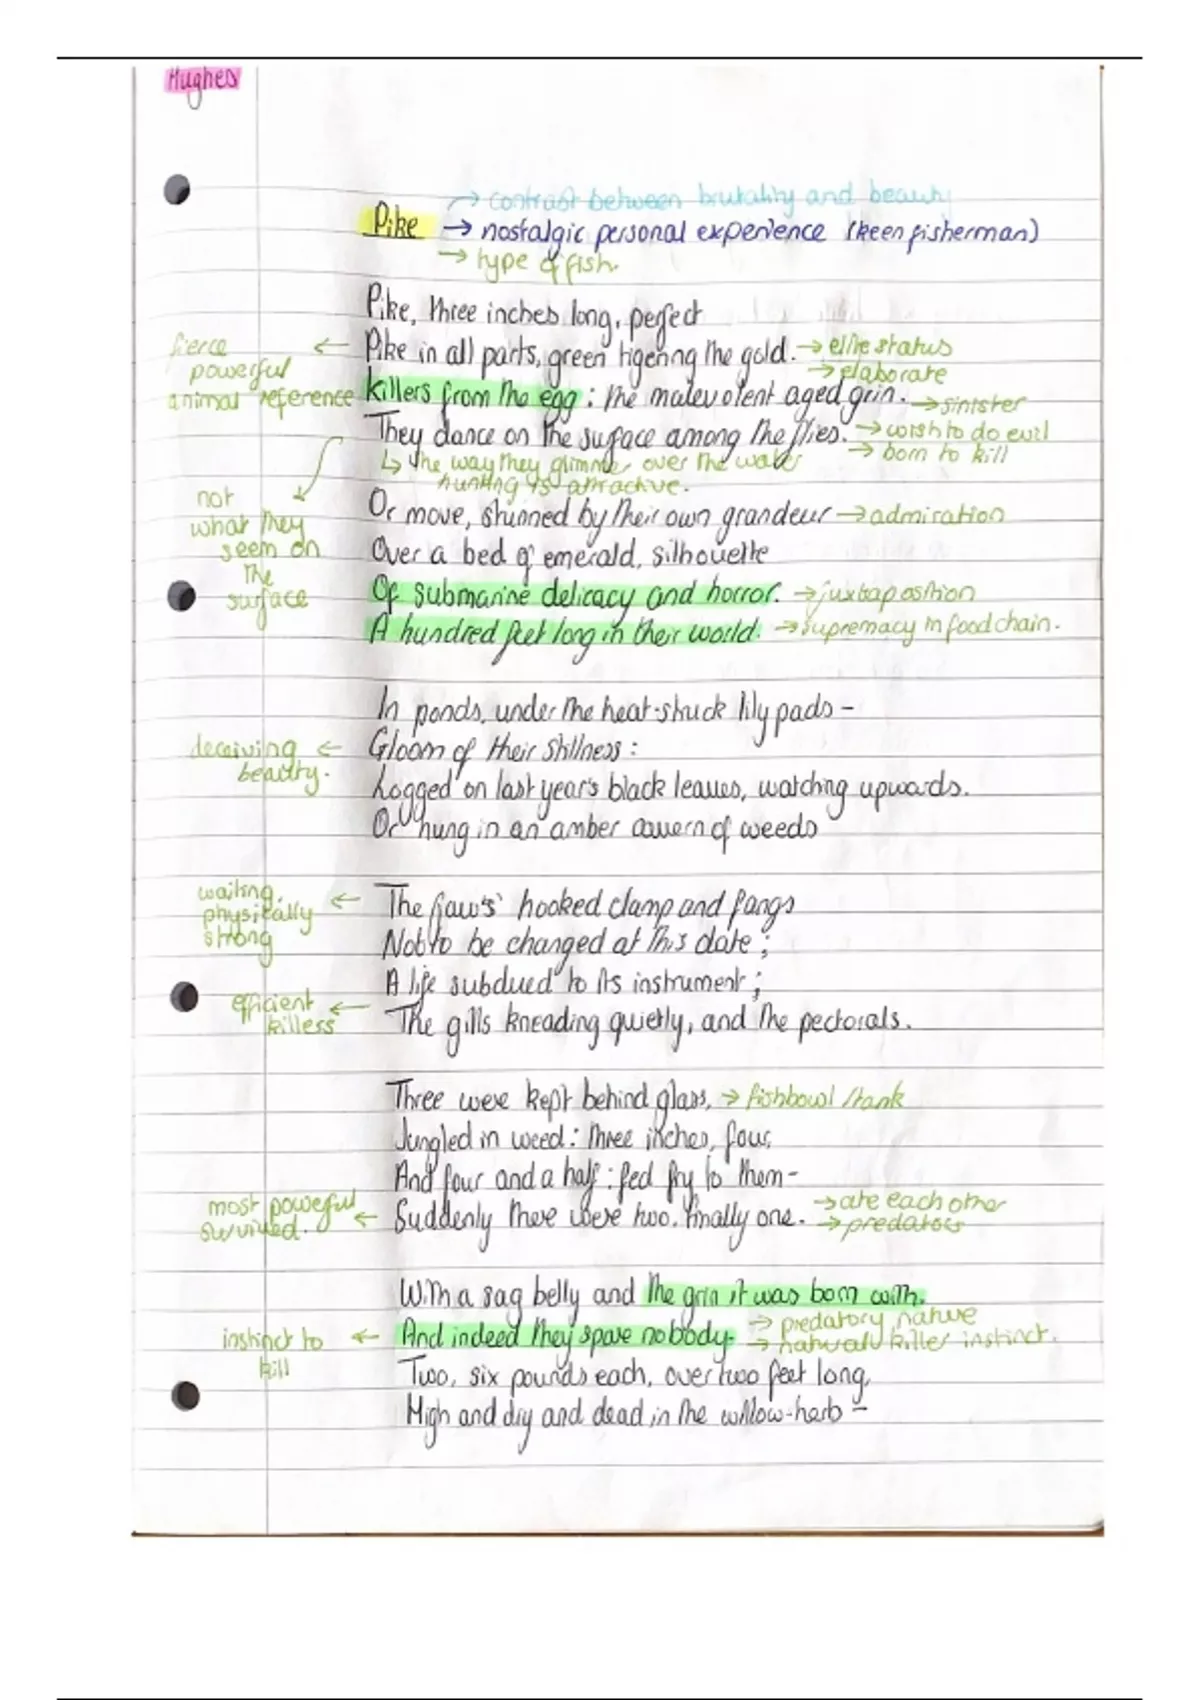 Hughes
→ contrast between brutality and beauty
Pike → nostalgic personal experience (keen fisherman)
→ type of fish.
Pike, three inches long, perfect
fierce powerful animal reference ← Pike in all parts, green tigering the gold. → elite status
→ elaborate
killers from the egg : the malevolent aged grin. → sinister
They dance on the surface among the flies. → wish to do evil
→ born to kill
↳ the way they glimmer over the water
hunting is attractive.
not what they seem on the surface
Or move, stunned by their own grandeur → admiration
Over a bed of emerald, silhouette
Of submarine delicacy and horror. → juxtaposition
A hundred feet long in their world. → supremacy in food chain.
In ponds, under the heat-struck lily pads –
deceiving beauty. ← Gloom of their stillness :
Logged on last year's black leaves, watching upwards.
Or hung in an amber cavern of weeds
waiting, physically strong ← The jaws' hooked clamp and fangs
Not to be changed at this date ;
A life subdued to its instrument ;
efficient killess ← The gills kneading quietly, and the pectorals.
Three were kept behind glass, → fishbowl / tank
Jungled in weed : three inches, four,
And four and a half : fed fry to them –
most powerful survived. ← Suddenly there were two. Finally one. → ate each other
→ predators
With a sag belly and the grin it was born with.
→ predatory nature
instinct to kill ← And indeed they spare nobody. → naturally killer instinct.
Two, six pounds each, over two feet long,
High and dry and dead in the willow-herb –